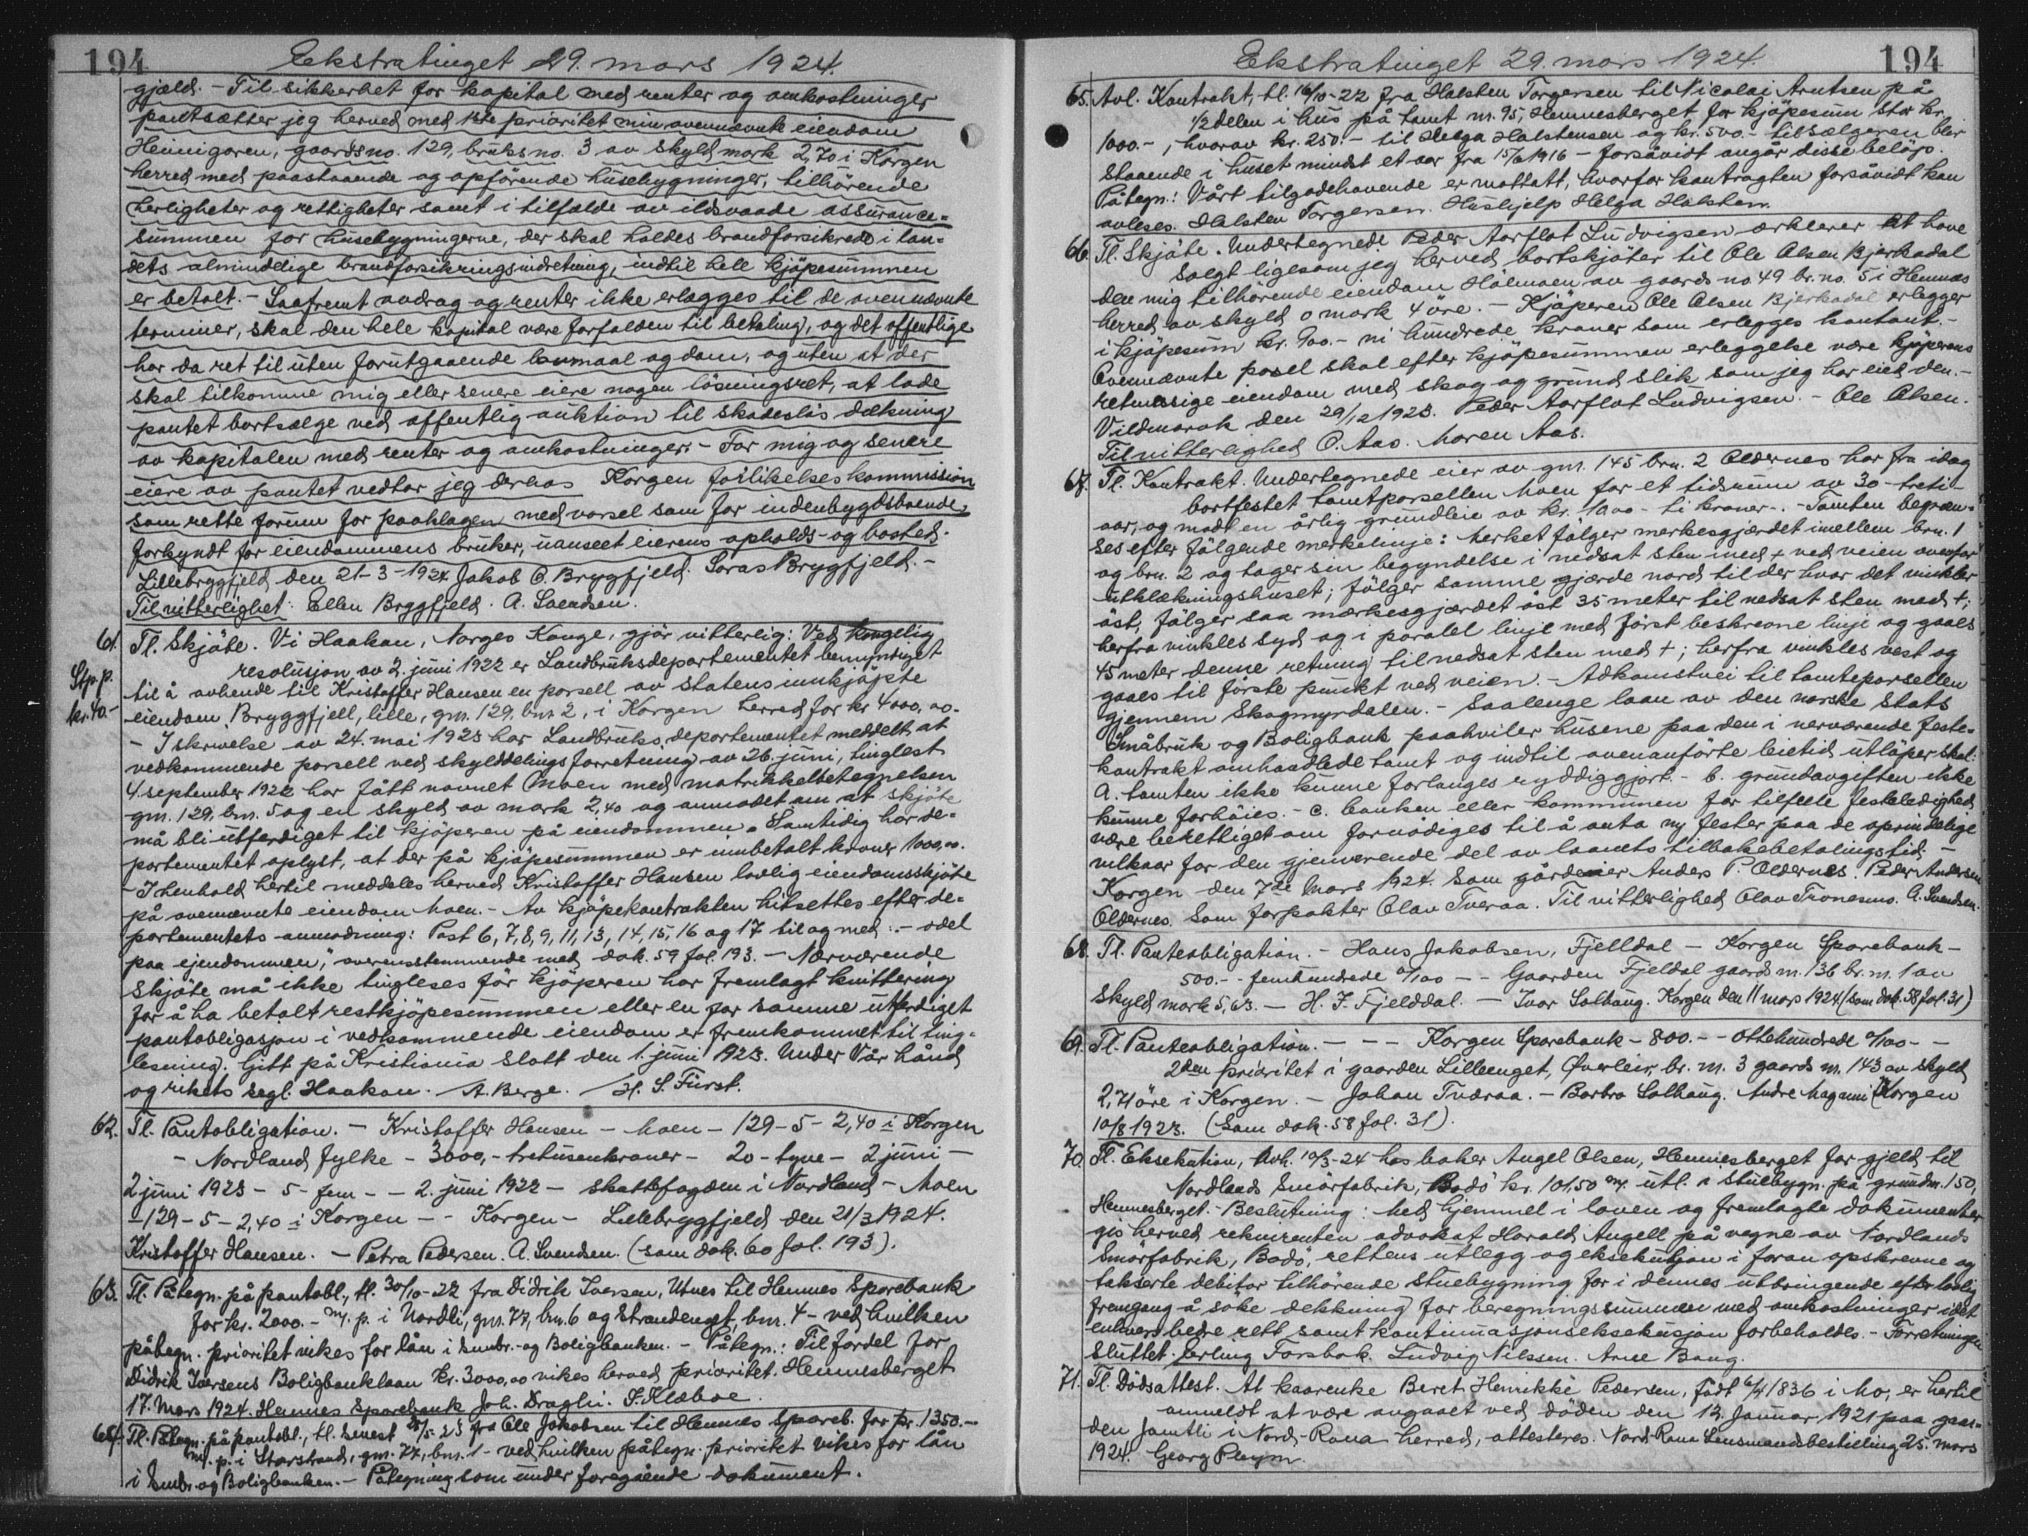 194
Ekstratinget 29. mars 1924.
gjæld. - Til sikkerhet for kapital med renter og omkostninger
pantsætter jeg herved med 1ste prioritet min ovennævnte eiendom
Heinigaren, gaardsno. 129, bruksno. 3 av skyld mark 2,70 i Korgen
herred med paastaaende og opførende husebygninger, tilhørende
herligheter og rettigheter samt i tilfælde av ildsvaade assurance=
summen for husebygningerne, der skal holdes brandforsikrede i lan=
dets almindelige brandforsikringsindretning, indtil hele kjøpesummen
er betalt. - Saafremt avdrag og renter ikke erlægges til de ovennævnte
terminer, skal den hele kapital være forfalden til betaling, og det offentlige
har da ret til uten forutgaaende lovmaal og dom, og uten at der
skal tilkomme mig eller senere eiere nogen løsningsret, at lade
pantet bortsælge ved offentlig auktion til skadesløs dækning
av kapitalen med renter og omkostninger. - For mig og senere
eiere av pantet vedtar jeg derhos Korgen forlikelseskommission
som rette forum for paaklagen med varsel som for indenbygdsboende,
forkyndt for eiendommens bruker, uanseet eierens opholds- og bosted.
Lillebryggfjeld den 21-3-1924. Jakob C. Bryggfjeld. Saras Bryggfjeld. -
Til vitterlighet: Ellen Bryggfjeld. A. Svendsen.
61. Tl. Skjøte. Vi Haakon, Norges Konge, gjør vitterlig: Ved kongelig
Stp. p.
kr. 40.-
resolusjon av 2. juni 1922 er Landbruksdepartementet bemyndiget
til å avhende til Kristoffer Hansen en parsell av statens innkjøpte
eiendom Bryggfjell, lille, gnr. 129, bnr. 2, i Korgen herred for kr 4000,00.
- I skrivelse av 24. mai 1923 har Landbruksdepartementet meddelt, at
vedkommende parsell ved skylddelingsforretning av 26. juni, tinglest
4. september 1922 har fått navnet Moen med matrikkelbetegnelsen
gnr. 129, bnr. 5 og en skyld av mark 2,40 og anmodet om at skjøte
må bli utferdiget til kjøperen på eiendommen. Samtidig har de=
partementet oplyst, at der på kjøpesummen er innbetalt kroner 1000,00.
- I henhold hertil meddeles herved Kristoffer Hansen lovlig eiendomsskjøte
på ovennævnte eiendom Moen. - Av kjøpekontrakten hitsettes efter de=
partementets anmodning: Post 6, 7, 8, 9, 11, 13, 14, 15, 16 og 17 til og med: - odel
paa ejendommen," overensstemmende med dok. 59 fol. 193. - Nærværende
skjøte må ikke tingleses før kjøperen har fremlagt kvittering
for å ha betalt restkjøpesummen eller en for samme utferdiget
pantobligasjon i vedkommende eiendom er fremkommet til ting=
lesning. Gitt på Kristiania slott den 1. juni 1923. Under Vår hånd
og rikets segl. Haakon. A. Berge. H. S. Fürst.
62. Tl. Pantobligation. - Kristoffer Hansen - Moen - 129 - 5 - 2,40 i Korgen
- Nordland fylke - 3000,- tretusenkroner - 20 - tyve - 2 juni -
2 juni 1923 - 5 - fem - - 2. juni 1922 - skattefogden i Nordland - Moen
- 129 - 5 - 2,40 i Korgen - - Korgen - Lillebryggfjeld den 21/3 1924.
Kristoffer Hansen. - Petra Pedersen. A. Svendsen. (som dok. 60 fol. 193).
63. Tl. Påtegn. på pantobl., tl. 30/10-22 fra Didrik Iversen, Utnes til Hemnes Sparebank
for kr. 2000.- m. p. i Nordli, gnr. 77, bnr. 6 og Strandenget, bnr. 4 - ved hvilken
påtegn. prioritet vikes for lån i Småbr. og Boligbanken. - Påtegn.: Til fordel for
Didrik Iversens Boligbanklaan kr. 3000,00 vikes herved prioritet. Hemnesberget
17. Mars 1924. Hemnes Sparebank Joh. Draglin. J. Klæboe.
64. Tl. Påtegn. på pantobl., tl. senest 28/5-23 fra Ole Jakobsen til Hemnes Spareb. for kr. 1350.-
m. p. i Storstrand, gnr. 77, bnr. 1 - ved hvilken påtegn. prioritet vikes for lån
i Småbr. og Boligbanken. - Påtegning som under foregående dokument.
Ekstratinget 29. mars 1924.
194
65. Avl. Kontrakt, tl. 16/10-22 fra Halsten Torgersen til Nicolai Arntsen på
1/2 delen i hus på tomt nr. 95, Hemnesberget for kjøpesum stor kr.
1000.-, hvorav kr. 250.- til Helga Halstensen og kr. 500.- til sælgeren blir
staaende i huset mindst et aar fra 15/6 1916 - forsåvidt angår disse beløp.
Påtegn.: Vårt tilgodehavende er mottatt, hvorfor kontragten forsåvidt kan
avleses. Halsten Torgersen. Hushjelp Helga Halstens.
66. Tl. Skjøte. Undertegnede Peder Aarflot Ludvigsen ærklerer at have
solgt ligesom jeg herved bortskjøter til Ole Olsen Bjerkadal
den mig tilhørende eiendom Holmoen av gaards no. 49 br. no. 5 i Hemnæs
herred av skyld 0 mark 4 øre. - Kjøperen Ole Olsen Bjerkadal erlegger
i kjøpesum kr. 900.- ni hundrede kroner som erlegges kontant. -
Ovennævnte posel skal efter kjøpesummen erleggelse være kjøperens
retmessige eiendom med skog og grund slik som jeg har eied den. -
Vildmarok den 29/12 1923. Peder Aarflot Ludvigsen. - Ole Olsen.
Til vitterlighed O. Aas. Maren Aas.
67. Tl. Kontrakt. Undertegnede eier av gnr. 145 brn. 2 Oldernes har fra idag
bortfestet tomtparsellen Moen for et tidsrum av 30 - treti -
aar, og mod en årlig grundleie av kr. 10.00 - ti kroner -. - Tomten begræn=
ses efter følgende merkelinje: Merket følger merkesgjærdet imellem brn. 1
og brn. 2 og tager sin begyndelse i nedsat sten med + ved veien ovenfor
utklækningshuset; følger samme gjærde nord til der hvor det vinkler
øst, følger saa mærkesgjærdet øst 35 meter til nedsat sten med +;
herfra vinkles syd og i paralel linje med først beskrevne linje og gaaes
45 meter denne retning til nedsat sten med +; herfra vinkles vest og
gaaes til første punkt ved veien. - Adkomstvei til tomteparsellen
gjennem Skogmyrdalen. - Saalenge laan av den norske Stats
Småbruk og Boligbank paahviler husene paa den i nerværende feste=
kontrakt omhandlede tomt og indtil ovenanførte leietid utløper skal:
a. tomten ikke kunne forlanges ryddiggjort. - b. grundavgiften ikke
kunne forhøies. - c. banken eller kommunen for tilfelle festeledighed
være berettiget om fornødiges til å anta ny fester paa de oprindelige
vilkaar for den gjenværende del av laanets tilbakebetalingstid -
Korgen den 7de Mars 1924. Som gårdeier Anders P. Oldernes. Peder Andersen
Oldernes. Som forpakter Olav Tveraa. Til vitterlighed Olav Tronesmo. A. Svendsen.
68. Tl. Panteobligation. - Hans Jakobsen, Fjelldal - Korgen Sparebank -
500.- - femhundrede 0/100 - - Gaarden Fjeldal gaards nr. 136 br. nr. 1 av
skyld mark 5,63. - H. J. Fjelddal. - Ivar Solhaug. Korgen den 11 mars 1924 (som dok. 58 fol. 31)
69. Tl. Panteobligation. - - - Korgen Sparebank - 800.- - ottehundrede 0/100 - -
2den prioritet i gaarden Lilleenget, Øverleir, br. nr. 3 gaards nr. 143 av skyld
2,71 øre i Korgen. - Johan Tværaa. - Barbra Solhaug. Andre Magnus (Korgen
10/8 1923. (Som dok. 58 fol. 31).
70. Tl. Eksekution, avh. 10/3-24 hos baker Angel Olsen, Hemnesberget for gjeld til
Nordlands Smørfabrik, Bodø kr. 101,50 m. utl. i stuebygn. på grundnr. 150,
Hemnesberget. - Beslutning: Med hjemmel i loven og fremlagte dokumenter
gis herved rekvirenten advokat Harald Angell på vegne av Nordlands
Smørfabrik, Bodø, rettens utlegg og eksekusjon i foran opskrevne og
takserte debitor tilhørende stuebygning for i dennes utbringende efter lovlig
fremgang å søke dekkning for beregningssummen med omkostninger idet
enhvers bedre rett samt kontinuasjonseksekusjon forbeholdes. - Forretningen
sluttet. Erling Forsbak. Ludvig Nilssen. Arne Bang.
71. Tl. Dødsattest. At kaarenke Beret Henrikke Pedersen, født 6/4 1836 i Mo, er hertil
anmeldt at være avgaaet ved døden den 12. Januar 1921 paa gaar=
den Jamtli i Nord-Rana herred, attesteres. Nord-Rana Lensmandsbestilling 25. mars
1924. Georg Pleym.